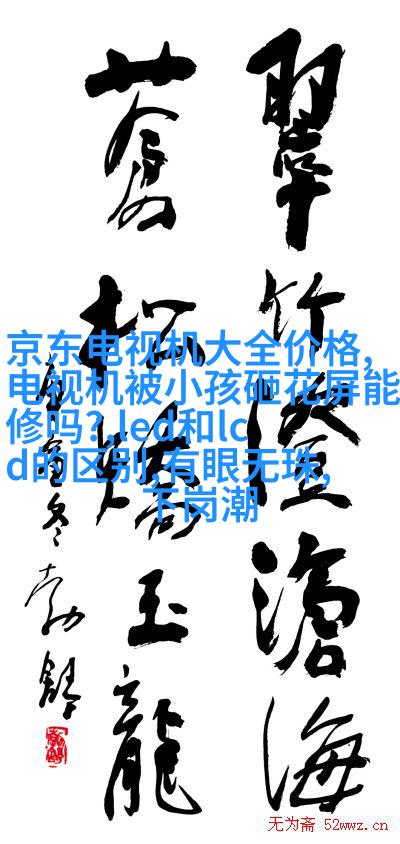 翠竹澄滄海
蒼松
玉龍
京东电视机大全价格,
电视机被小孩砸花屏能
修吗? led和lc
d的区别,有眼无珠,
下岗潮
无为斋 52wwz.cn